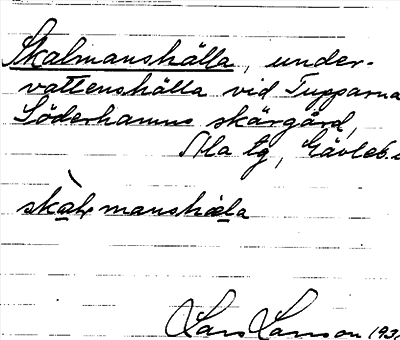 Skalmanshälla, under-
vattenshälla vid Tupparna
Söderhamns skärgård,
Ala tg, Gävleb.
skalmanshæla
Lars Larsson 193